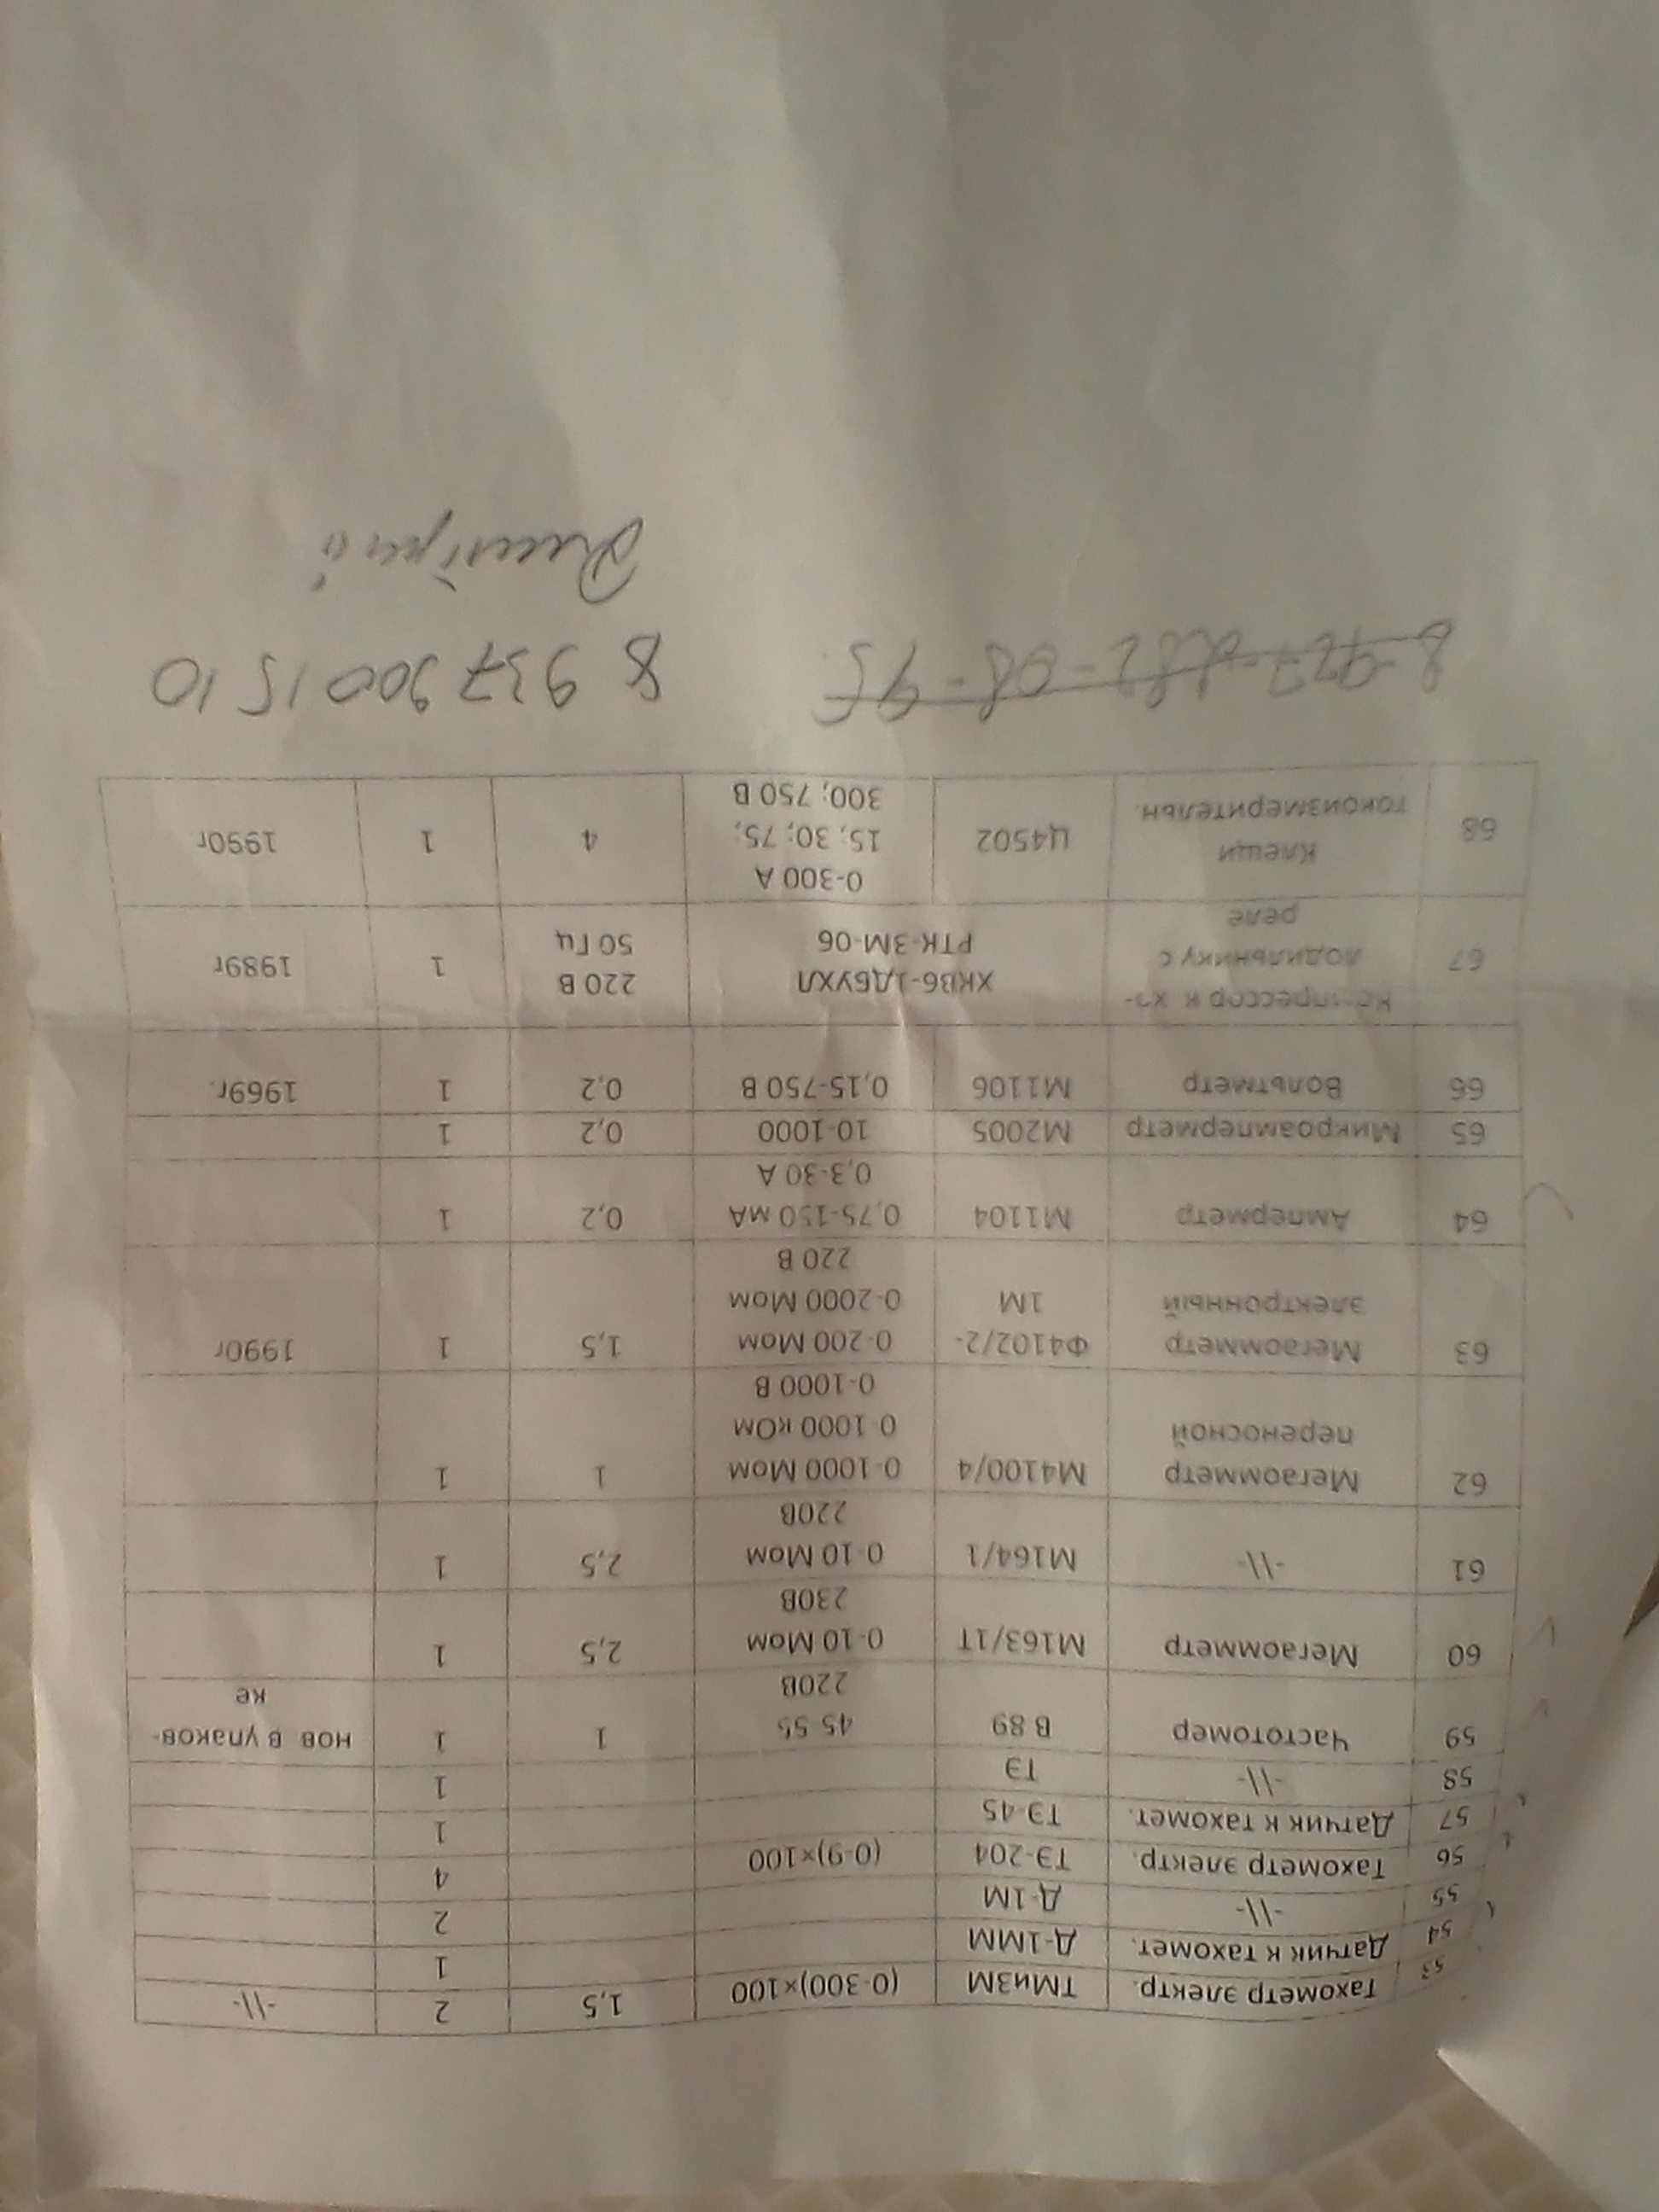 53 Тахометр электр. ТМиЗМ (0-300)×100 1,5 2 -\\-
54 Датчик к тахомет. Д-1ММ 1
55 -\\- Д-1М 2
56 Тахометр электр. ТЭ-204 (0-9)×100 4
57 Датчик к тахомет. ТЭ-45 1
58 -\\- ТЭ 1
59 Частотомер В 89 45-55 1 1 нов в упаков-
220В ке
60 Мегаомметр М163/1Т 0-10 Мом 2,5 1
230В
61 -\\- М164/1 0-10 Мом 2,5 1
220В
62 Мегаомметр М4100/4 0-1000 Мом 1 1
переносной 0-1000 кОм
0-1000 В
63 Мегаомметр Ф4102/2- 0-200 Мом 1,5 1 1990г
электронный 1М 0-2000 Мом
220 В
64 Амперметр М1104 0,75-150 мА 0,2 1
0,3-30 А
65 Микроамперметр М2005 10-1000 0,2 1
66 Вольтметр М1106 0,15-750 В 0,2 1 1969г.
67 Компрессор к хо- ХКВ6-1ДБУХЛ 220 В 1 1989г
лодильнику с РТК-3М-06 50 Гц
реле
68 Клещи Ц4502 0-300 А 4 1 1990г
токоизмерительн. 15; 30; 75;
300; 750 В
8 937 900 15 10
Дмитрий